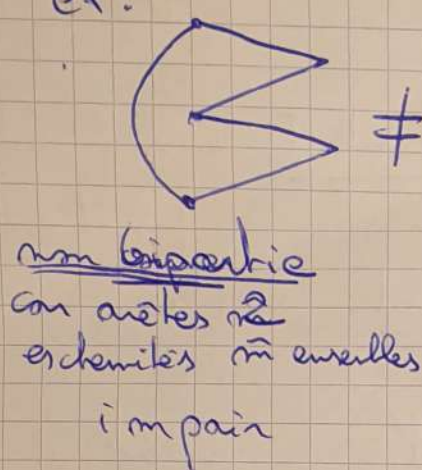 ex :
≠
non bipartie
car arêtes 2
extremités m̂ ensembles
impair